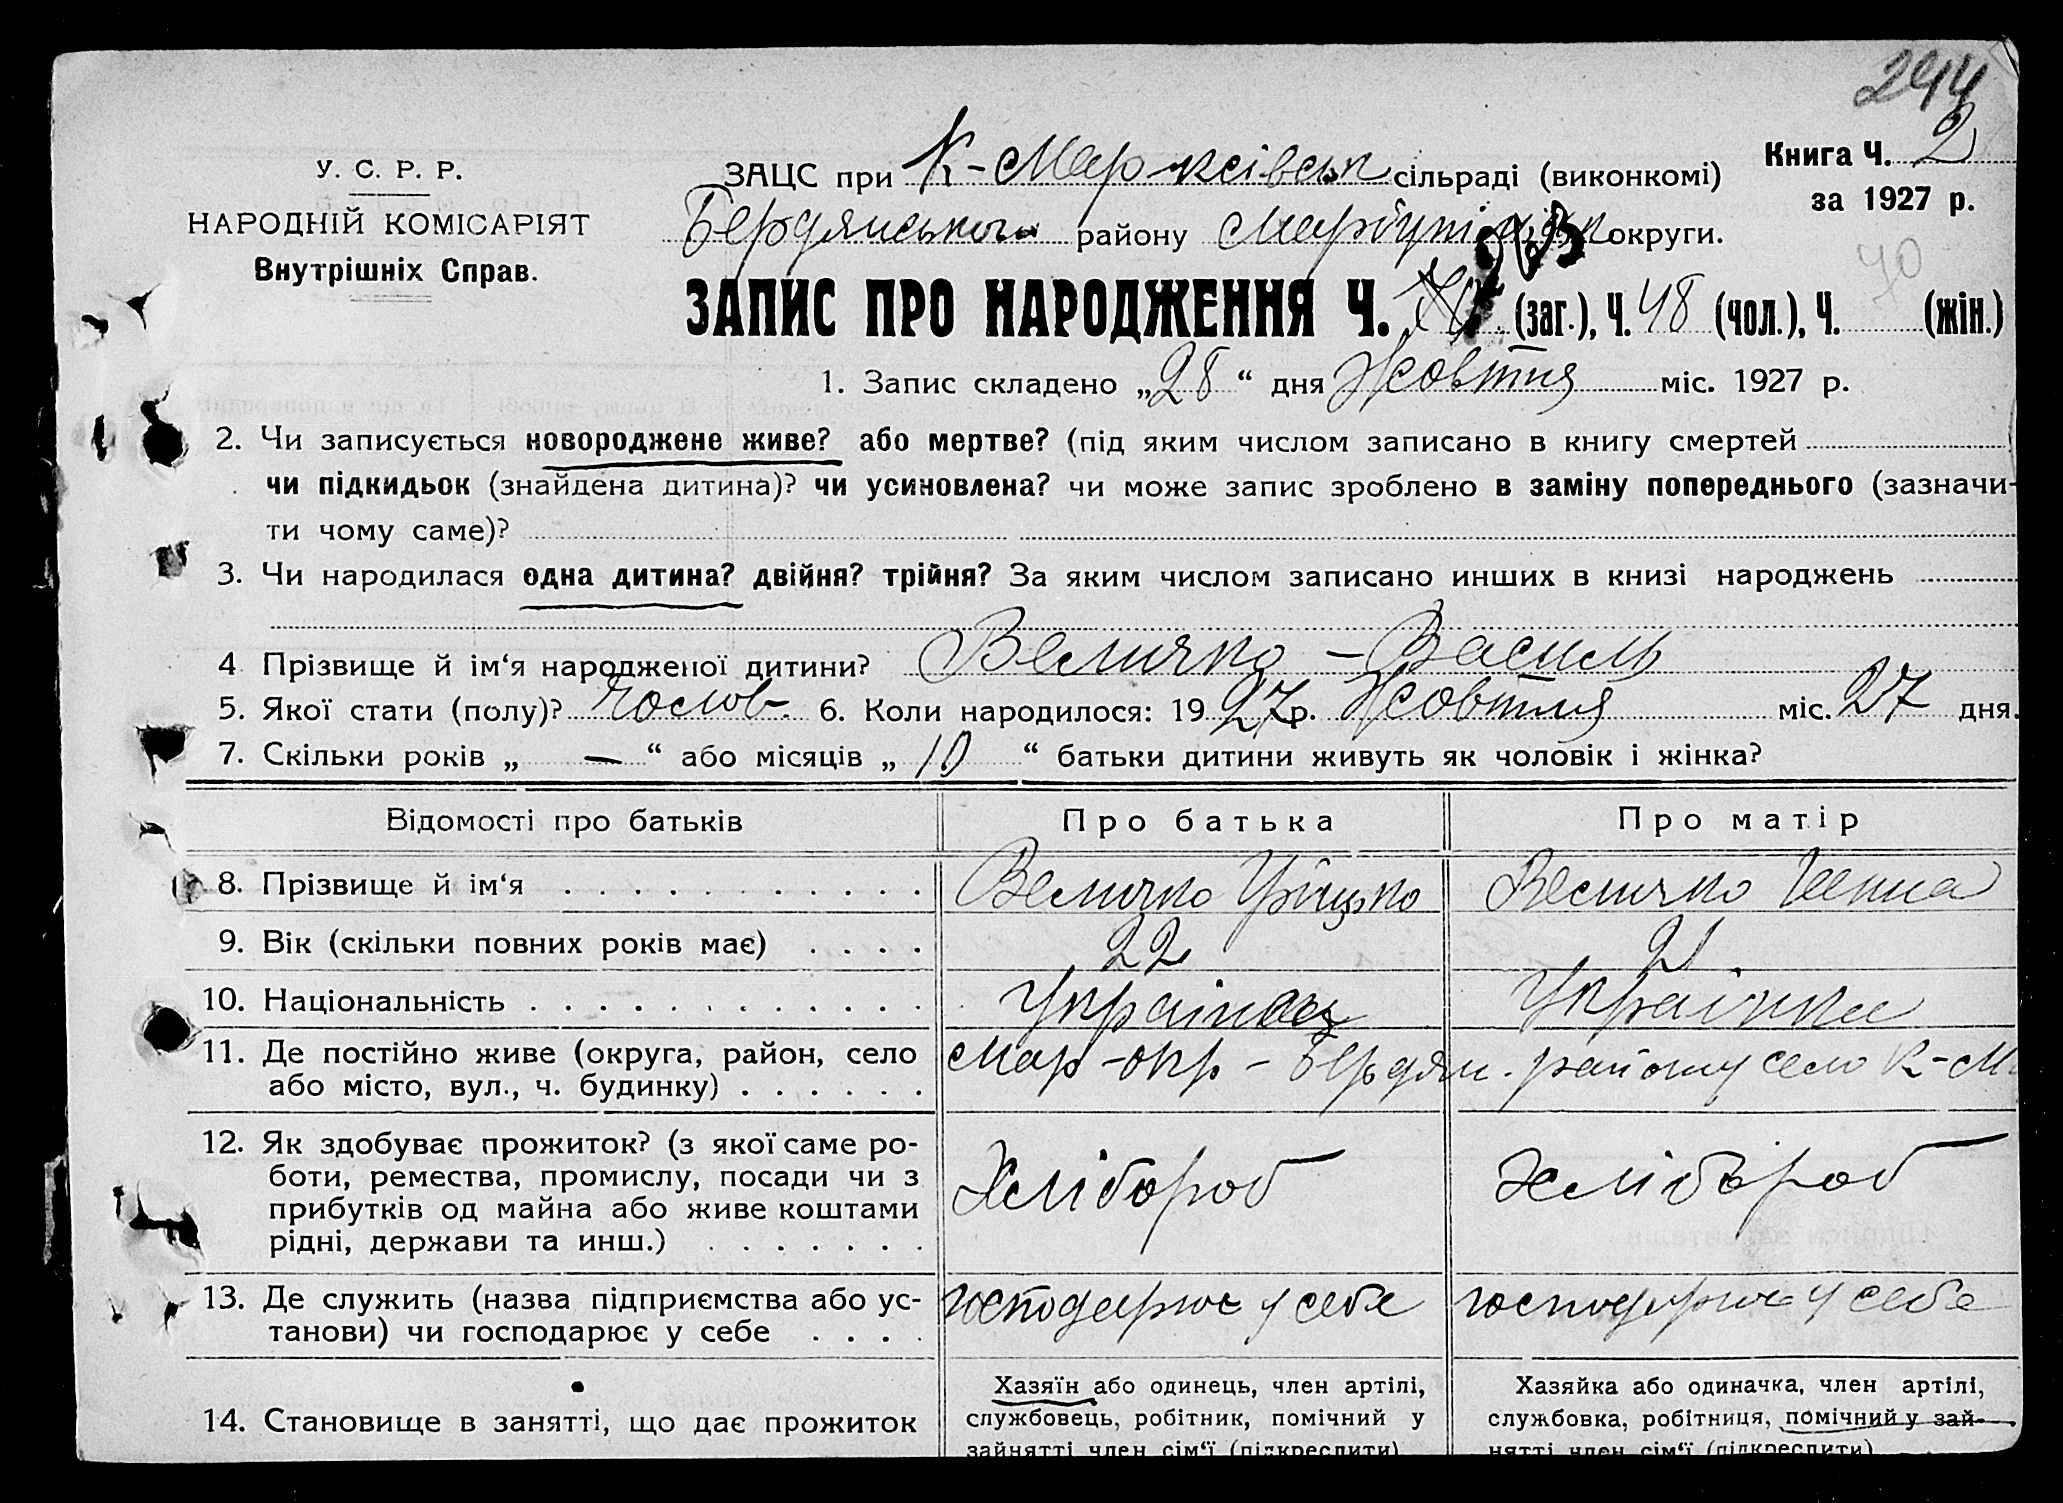 244
У. С. Р. Р.
НАРОДНІЙ КОМІСАРІЯТ
Внутрішніх Справ.
ЗАЦС при К-Марксівськ сільраді (виконкомі)
Бердянського району Маріупільськ округи.
Книга Ч. 2
за 1927 р.
40
ЗАПИС ПРО НАРОДЖЕННЯ Ч. (заг.), Ч. 48 (чол.), Ч. (жін.)
1. Запис складено „28“ дня Жовтня міс. 1927 р.
2. Чи записується новороджене живе? або мертве? (під яким числом записано в книгу смертей
чи підкидьок (знайдена дитина)? чи усиновлена? чи може запис зроблено в заміну попереднього (зазначи-
ти чому саме)?
3. Чи народилася одна дитина? двійня? трійня? За яким числом записано инших в книзі народжень
4 Прізвище й ім‘я народженої дитини? Величко - Василь
5. Якої стати (полу)? чолов. 6. Коли народилося: 1927 р. Жовтня міс. 27 дня.
7. Скільки років „ — “ або місяців „ 10 “ батьки дитини живуть як чоловік і жінка?
Відомості про батьків Про батька Про матір
8. Прізвище й ім‘я Величко Грицько Величко Ганна
9. Вік (скільки повних років має) 22 21
10. Національність Українець Українка
11. Де постійно живе (округа, район, село Мар-окр - Бердян. району село К-М
або місто, вул., ч. будинку)
12. Як здобуває прожиток? (з якої саме ро-
боти, ремества, промислу, посади чи з Хлібороб Хлібороб
прибутків од майна або живе коштами
рідні, держави та инш.)
13. Де служить (назва підприємства або ус- господарює у себе господарює у себе
танови) чи господарює у себе
Хазяїн або одинець, член артілі, Хазяйка або одиначка, член артілі,
14. Становище в занятті, що дає прожиток службовець, робітник, помічний у службовка, робітниця, помічний у зай-
зайнятті член сім‘ї (підкреслити) нятті член сім‘ї (підкреслити)